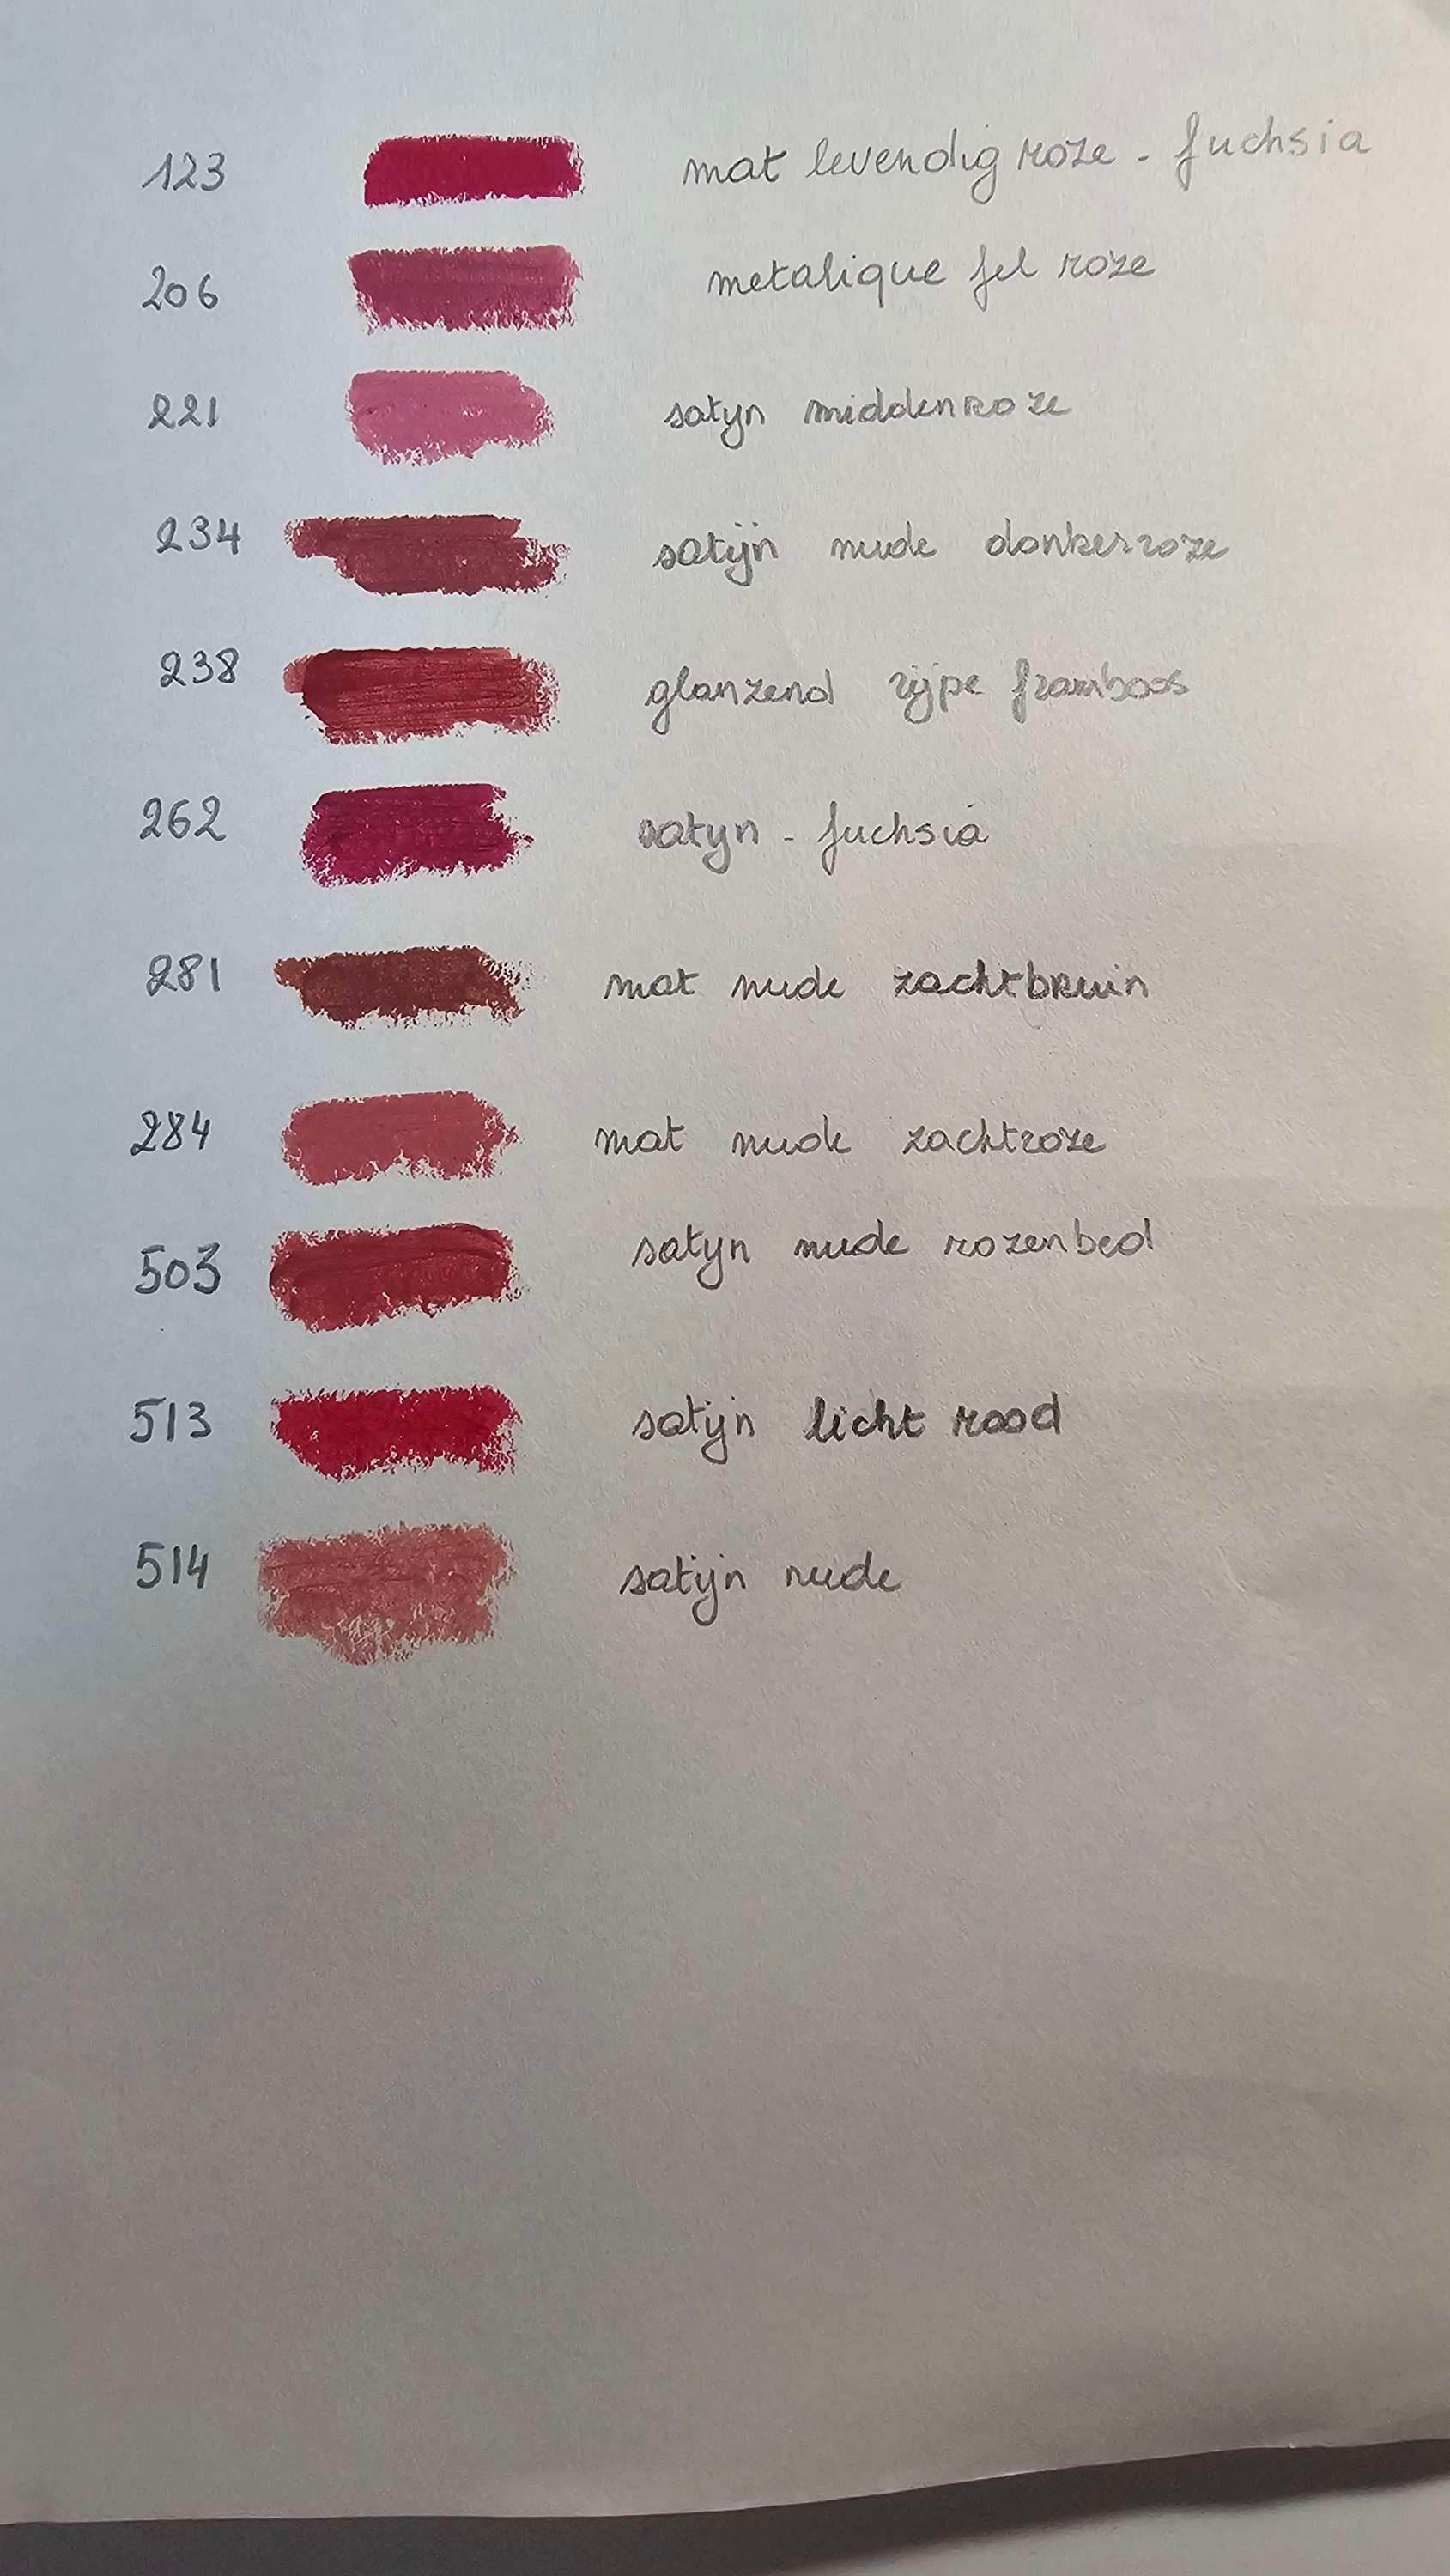 123 mat levendig roze - fuchsia
206 metalique fel roze
221 satyn middenroze
234 satijn nude donkerroze
238 glanzend rijpe framboos
262 satyn - fuchsia
281 mat nude zachtbruin
284 mat nude zachtroze
503 satyn nude rozenbed
513 satijn licht rood
514 satijn nude